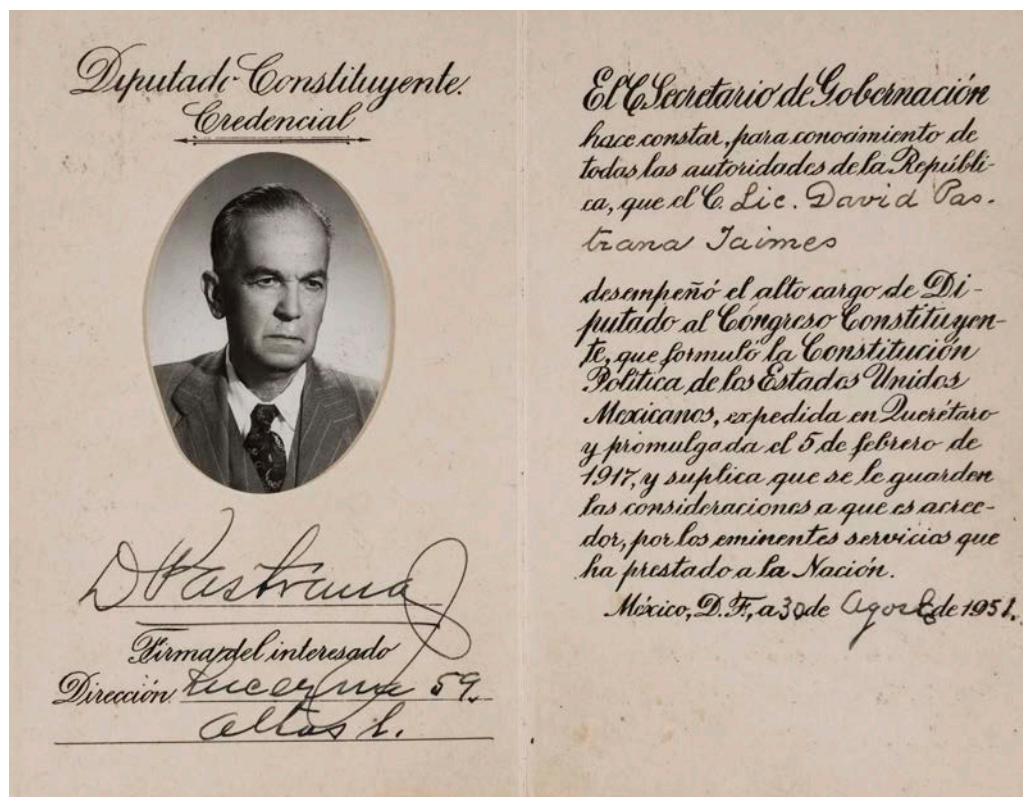 Diputado Constituyente.
Credencial
D Pastrana J
Firma del interesado
Dirección Lucerna 59.
Altos 1.
El C Secretario de Gobernación
hace constar, para conocimiento de
todas las autoridades de la Repúbli-
ca, que el C. Lic. David Pas-
trana Jaimes
desempeñó el alto cargo de Di-
putado al Congreso Constituyen-
te, que formuló la Constitución
Política de los Estados Unidos
Mexicanos, expedida en Querétaro
y promulgada el 5 de febrero de
1917, y suplica que se le guarden
las consideraciones a que es acree-
dor, por los eminentes servicios que
ha prestado a la Nación.
México, D. F., a 30 de Agosto de 1951.